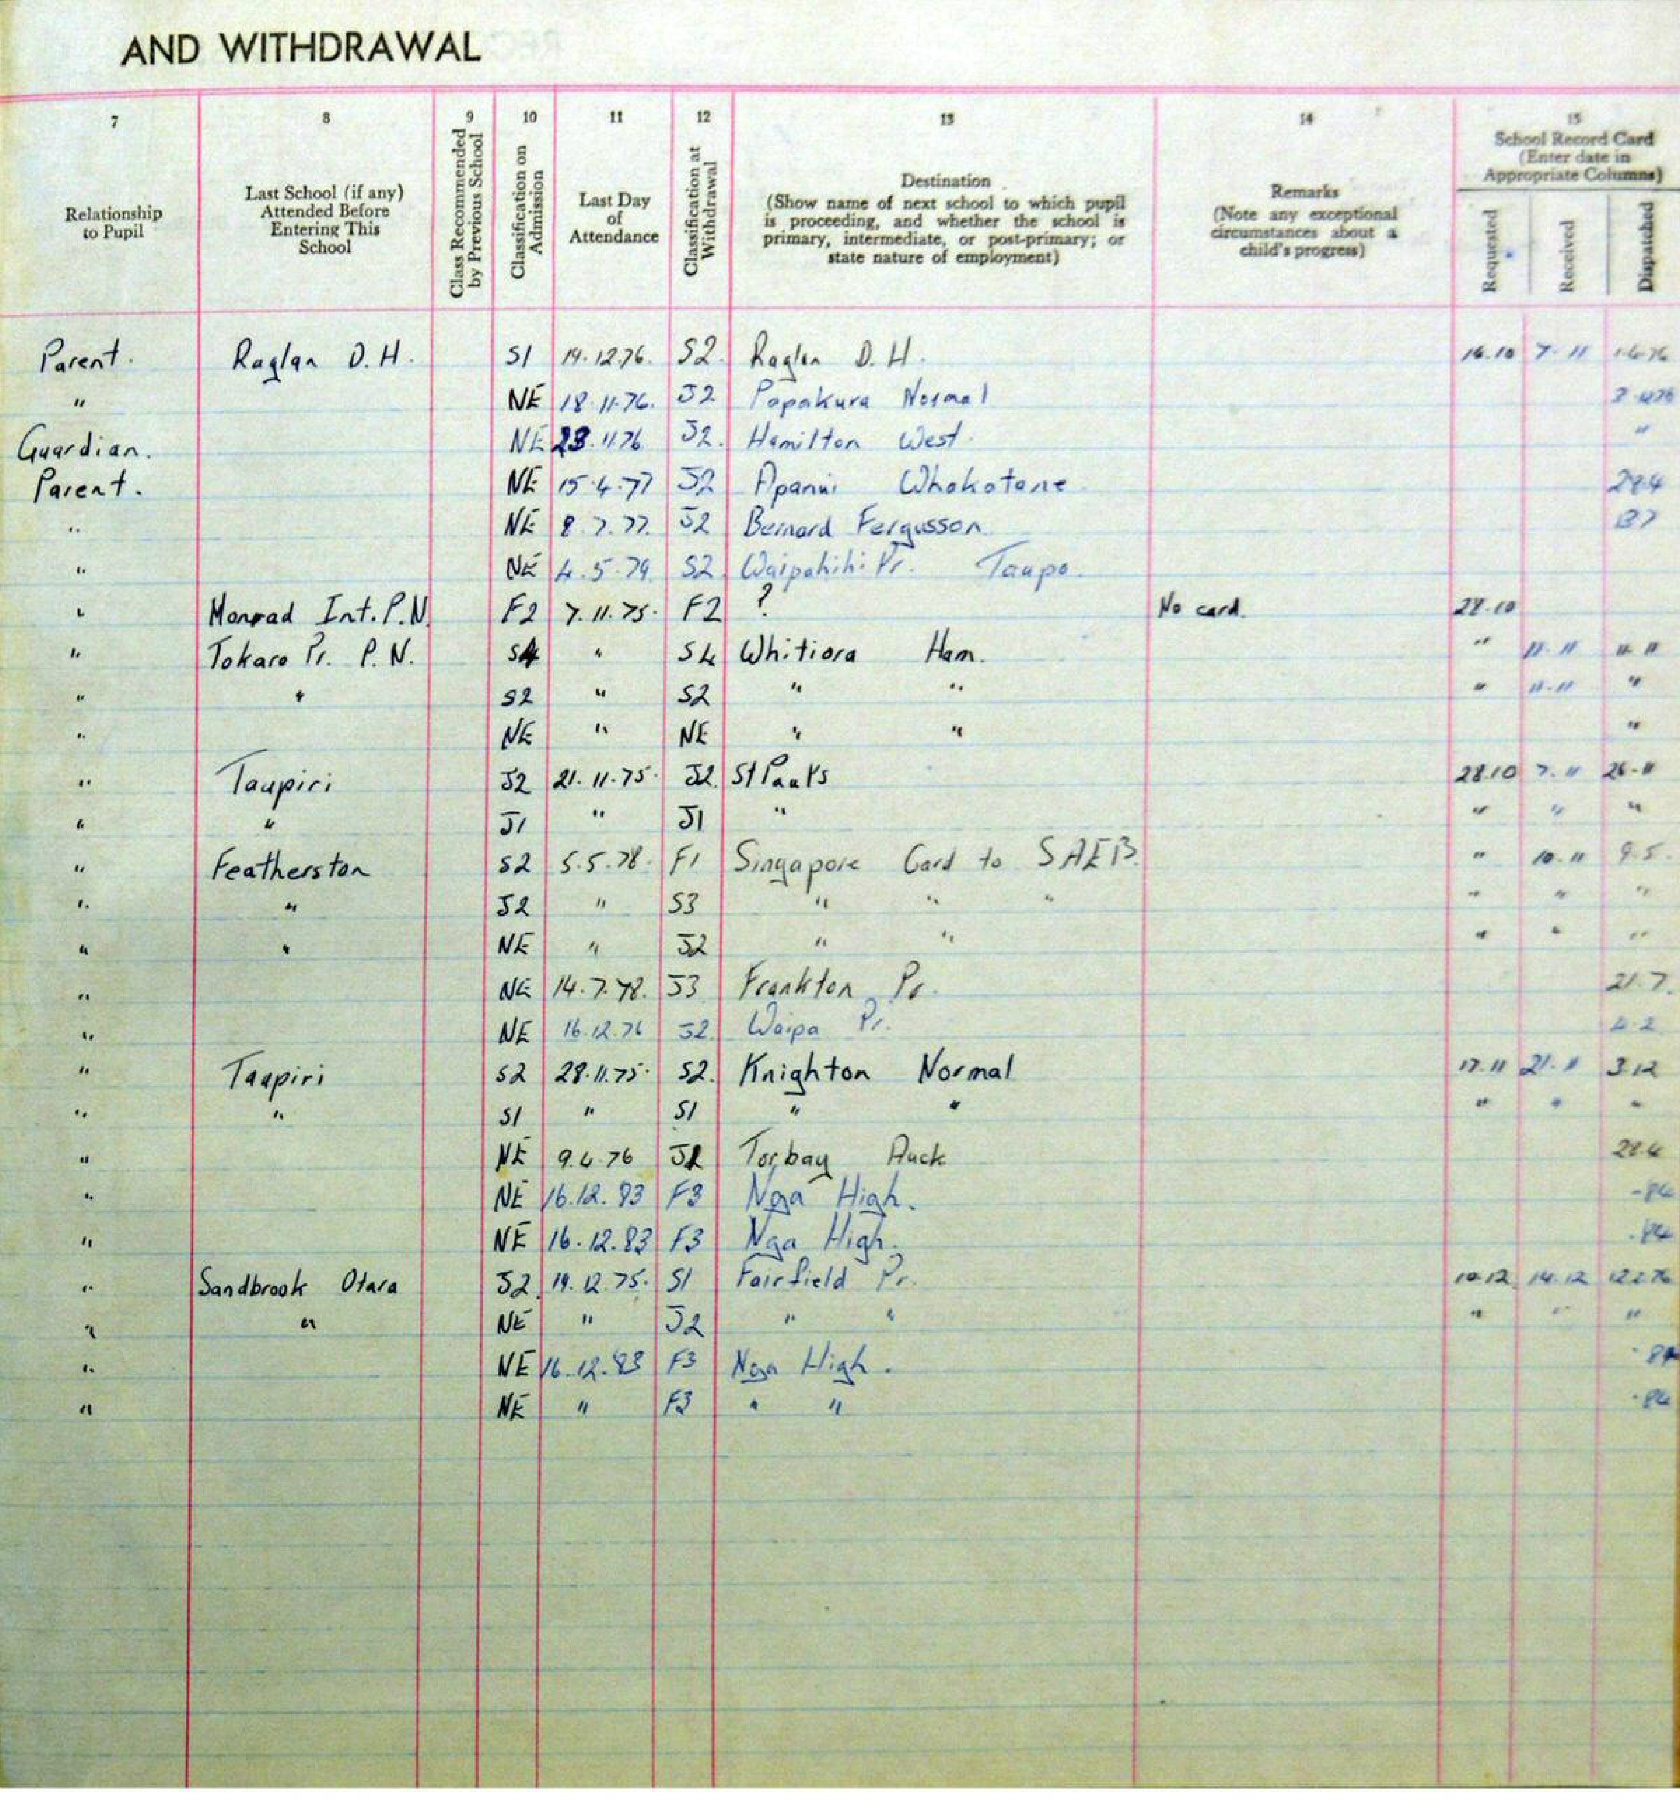 AND WITHDRAWAL
7 8 9 10 11 12 13 14 15
Relationship to Pupil
Last School (if any) Attended Before Entering This School
Class Recommended by Previous School
Classification on Admission
Last Day of Attendance
Classification at Withdrawal
Destination (Show name of next school to which pupil is proceeding, and whether the school is primary, intermediate, or post-primary; or state nature of employment)
Remarks (Note any exceptional circumstances about a child's progress)
School Record Card (Enter date in Appropriate Columns)
Requested Received Dispatched
Parent. Raglan D.H. S1 14.12.76. S2. Raglan D.H. 16.10 7.11
" NE 18.11.76. J2 Papakura Normal
Guardian. NE 23.11.76 J2. Hamilton West. "
Parent. NE 15.4.77 J2 Apanui Whakatane 28.4
" NE 8.7.77. J2 Bernard Fergusson
" NE 4.5.79. S2 Waipahihi Pr. Taupo.
" Monrad Int. P.N. F2 7.11.75. F2 ? No card. 28.10
" Tokaro Pr. P.N. S4 " S4 Whitiora Ham. " 11.11 11.11
" " S2 " S2 " " " 11.11 "
" NE " NE " " "
" Taupiri J2 21.11.75. J2. St Paul's 28.10 7.11 26.11
" " J1 " J1 " " " "
" Featherston S2 5.5.78. F1 Singapore Card to SAEB. " 10.11 9.5.
" " J2 " S3 " " " " " "
" " NE " J2 " " " " "
" NE 14.7.78. J3 Frankton Pr. 21.7.
" NE 16.12.76 J2 Waipa Pr. 4.2
" Taupiri S2 28.11.75. S2. Knighton Normal 17.11 21.11 3.12
" " S1 " S1 " " " " "
" NE 9.4.76 J2 Torbay Auck 28.4
" NE 16.12.83 F3 Nga High. -84
" NE 16.12.83 F3 Nga High. .84
" Sandbrook Otara J2 19.12.75. S1 Fairfield Pr. 10.12 14.12
" " NE " J2 " " " " "
" NE 16.12.83 F3 Nga High. .84
" NE " F3 " " .84